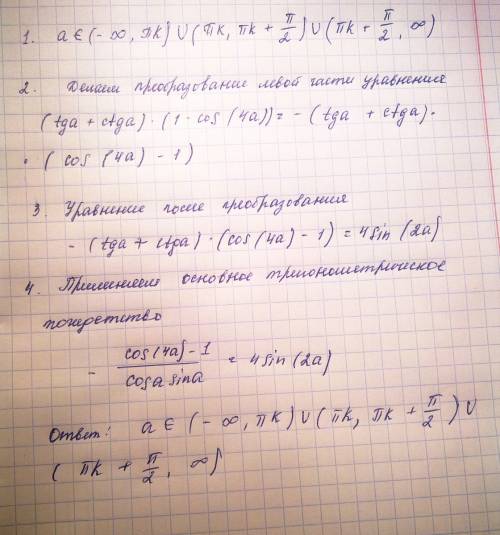 1. a ∈ (-∞, πk) ∪ (πk, πk + π/2) ∪ (πk + π/2, ∞)
2. Делаем преобразование левой части уравнения
(tga + ctga) · (1 - cos(4a)) = - (tga + ctga) ·
· (cos(4a) - 1)
3. Уравнение после преобразования
- (tga + ctga) · (cos(4a) - 1) = 4 sin(2a)
4. Применяем основное тригонометрическое
тождество
- (cos(4a) - 1)/(cosa sina) = 4 sin(2a)
Ответ: a ∈ (-∞, πk) ∪ (πk, πk + π/2) ∪
(πk + π/2, ∞)